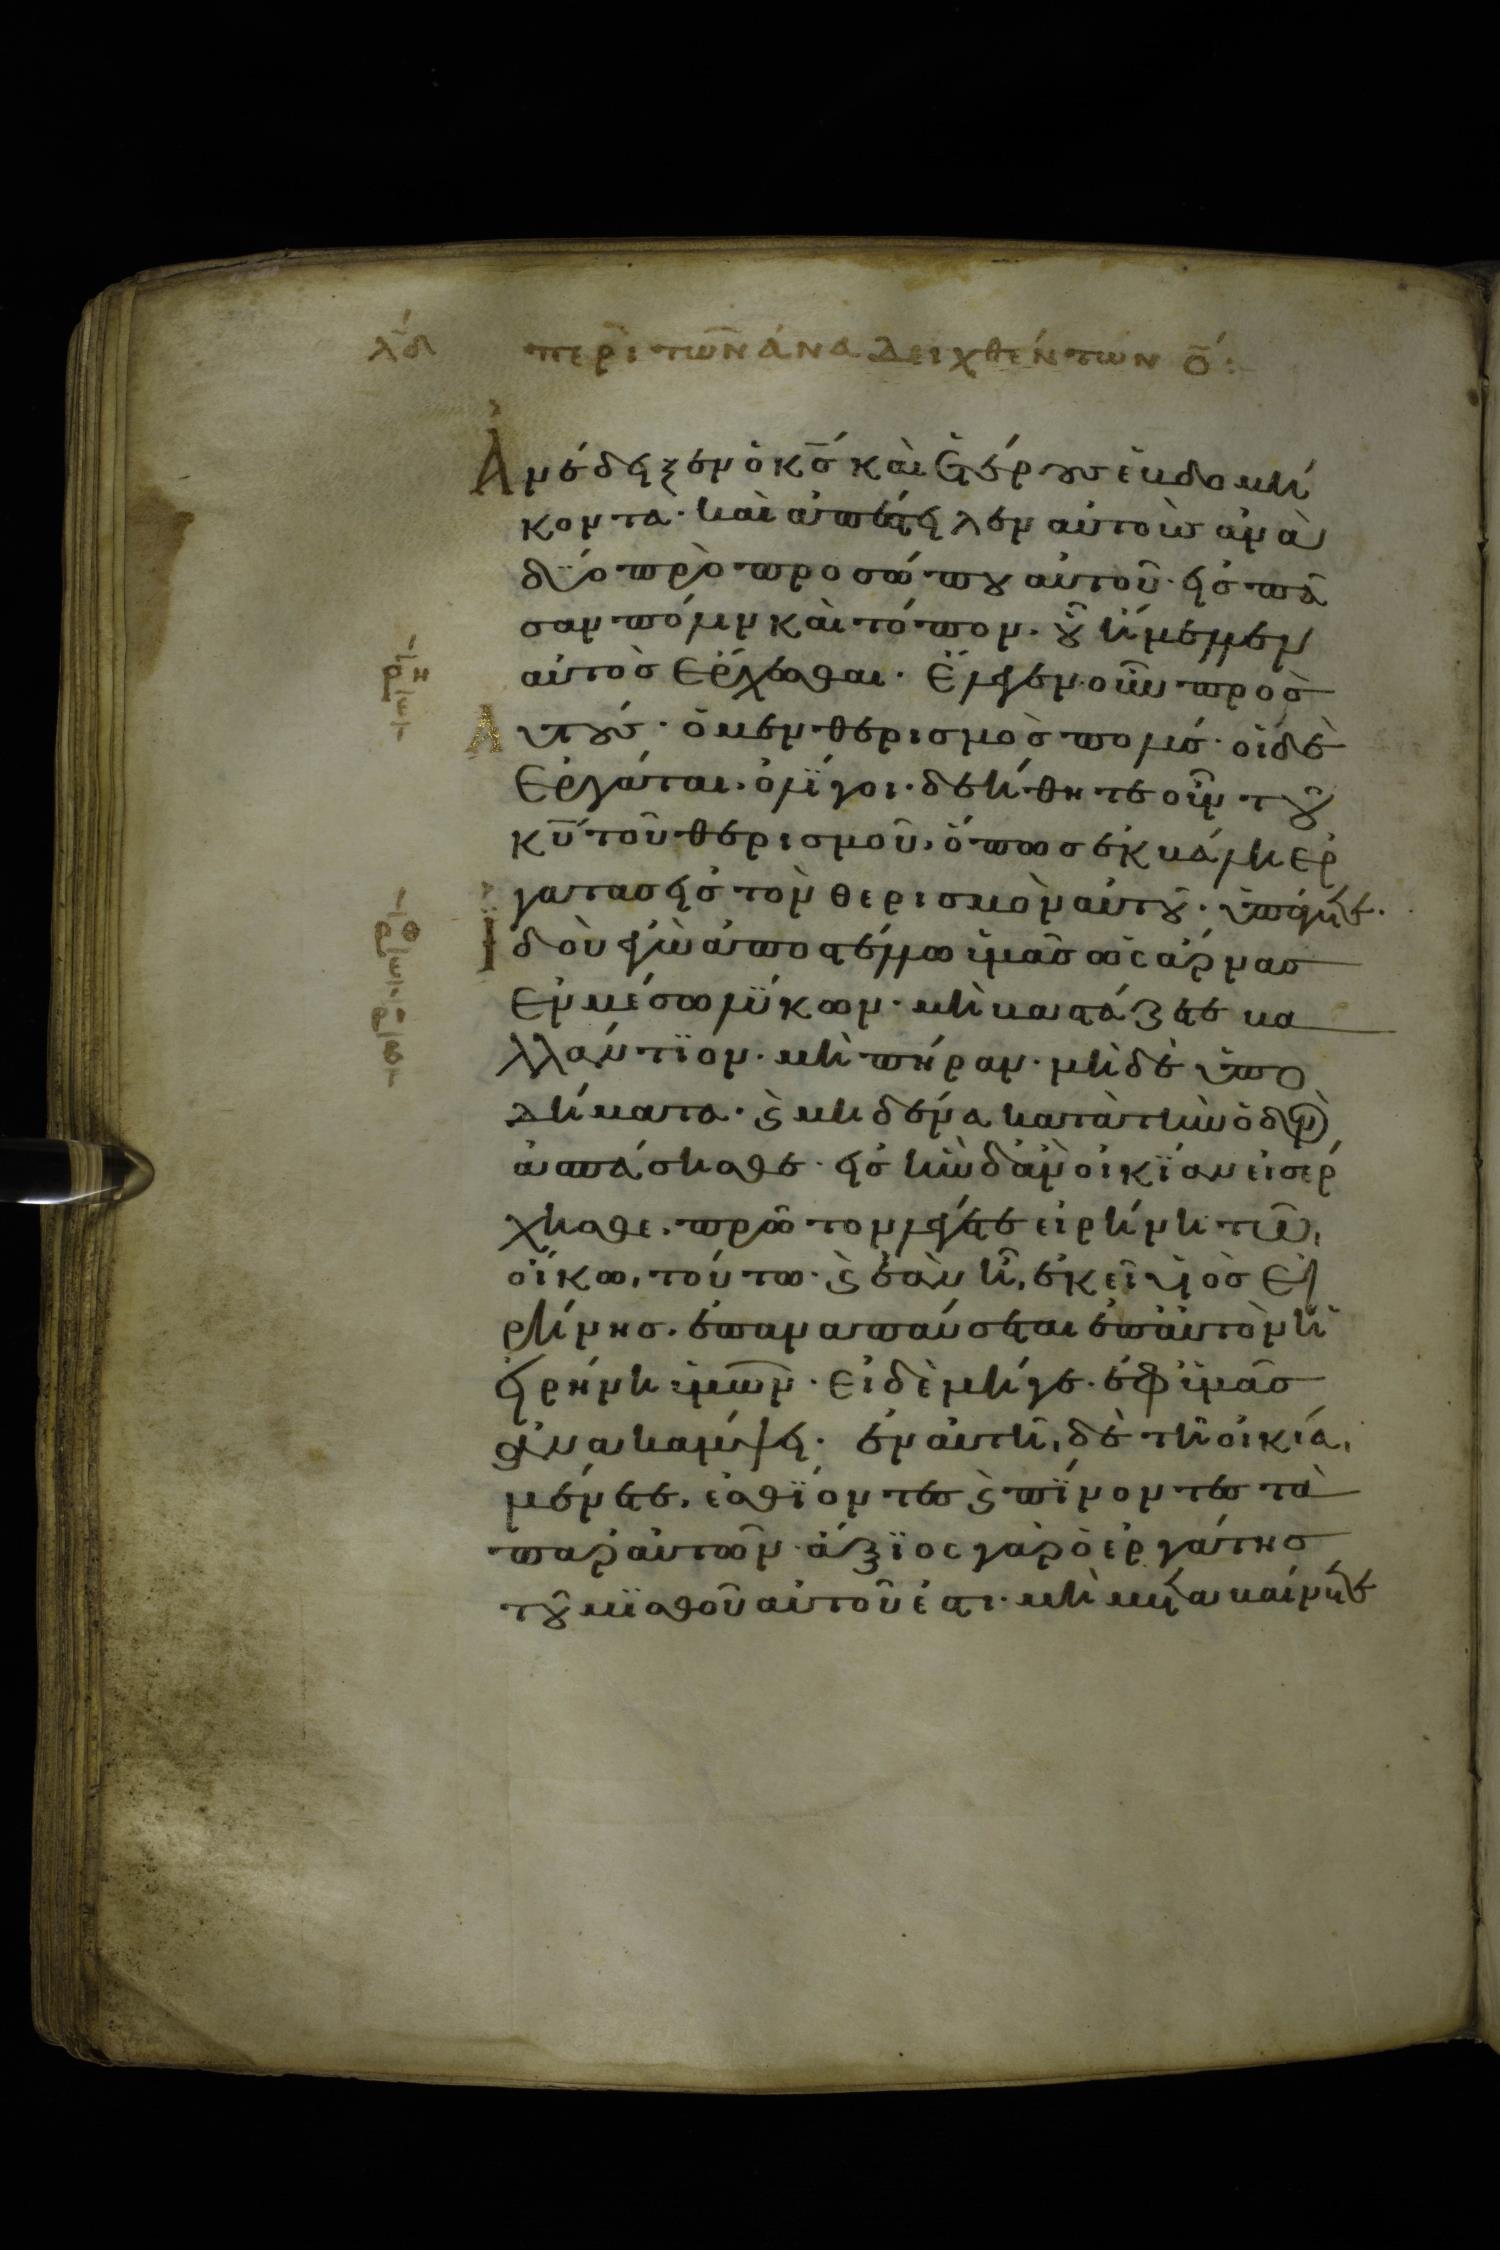 λδ περὶ τῶν ἀναδειχθέντων ο̅:
Ἀνέδειξεν ὁ κ̅ς καὶ ἑτέρους ἑβδομή
κοντα· καὶ ἀπέστειλεν αὐτοὺς ἀνὰ
δύο πρὸ προσώπου αὐτοῦ· εἰς πᾶ
σαν πόλιν καὶ τόπον· οὗ ἤμελλεν
αὐτὸς ἔρχεσθαι· ἔλεγεν οὖν πρὸς
Αὐτούς· ὁ μὲν θερισμὸς πολύς· οἱ δὲ
ἐργάται, ὀλΐγοι· δεήθητε οὖν τοῦ
κ̅υ τοῦ θερισμοῦ, ὅπως ἐκβάλη ἐρ
γάτας εἰς τὸν θερισμὸν αὐτοῦ· ὑπάγετε·
Ἰδοὺ ἐγὼ ἀποστέλλω ὑμᾶς ὡς ἄρνας
ἐν μέσω λύκων· μὴ βαστάζετε βα
λλάντϊον· μὴ πήραν· μηδὲ ὑπο
δήματα· ϛ μηδένα κατὰ τὴν ὁδὸν
ἀσπάσησθε· εἰς ἣν δ' ἂν οἰκΐαν εἰσέρ
χησθε, πρῶτον λέγετε εἰρήνη τῶ,
οἴκω, τούτω· ϛ ἐὰν ἦ, ἐκεῖ υἱὸς εἰ
ρήνης, ἐπαναπαύσεται ἐπ' αὐτὸν ἡ
εἰρήνη ὑμῶν· εἰ δὲ μήγε· ἐφ' ὑμᾶς
ἀνακάμψει· ἐν αὐτῆ, δὲ τῆ οἰκία,
μένετε, ἐσθΐοντες ϛ πΐνοντες τὰ
παρ' αὐτῶν· ἄξϊος γὰρ ὁ ἐργάτης
τοῦ μϊσθοῦ αὐτοῦ ἐστι· μὴ μεταβαίνετε